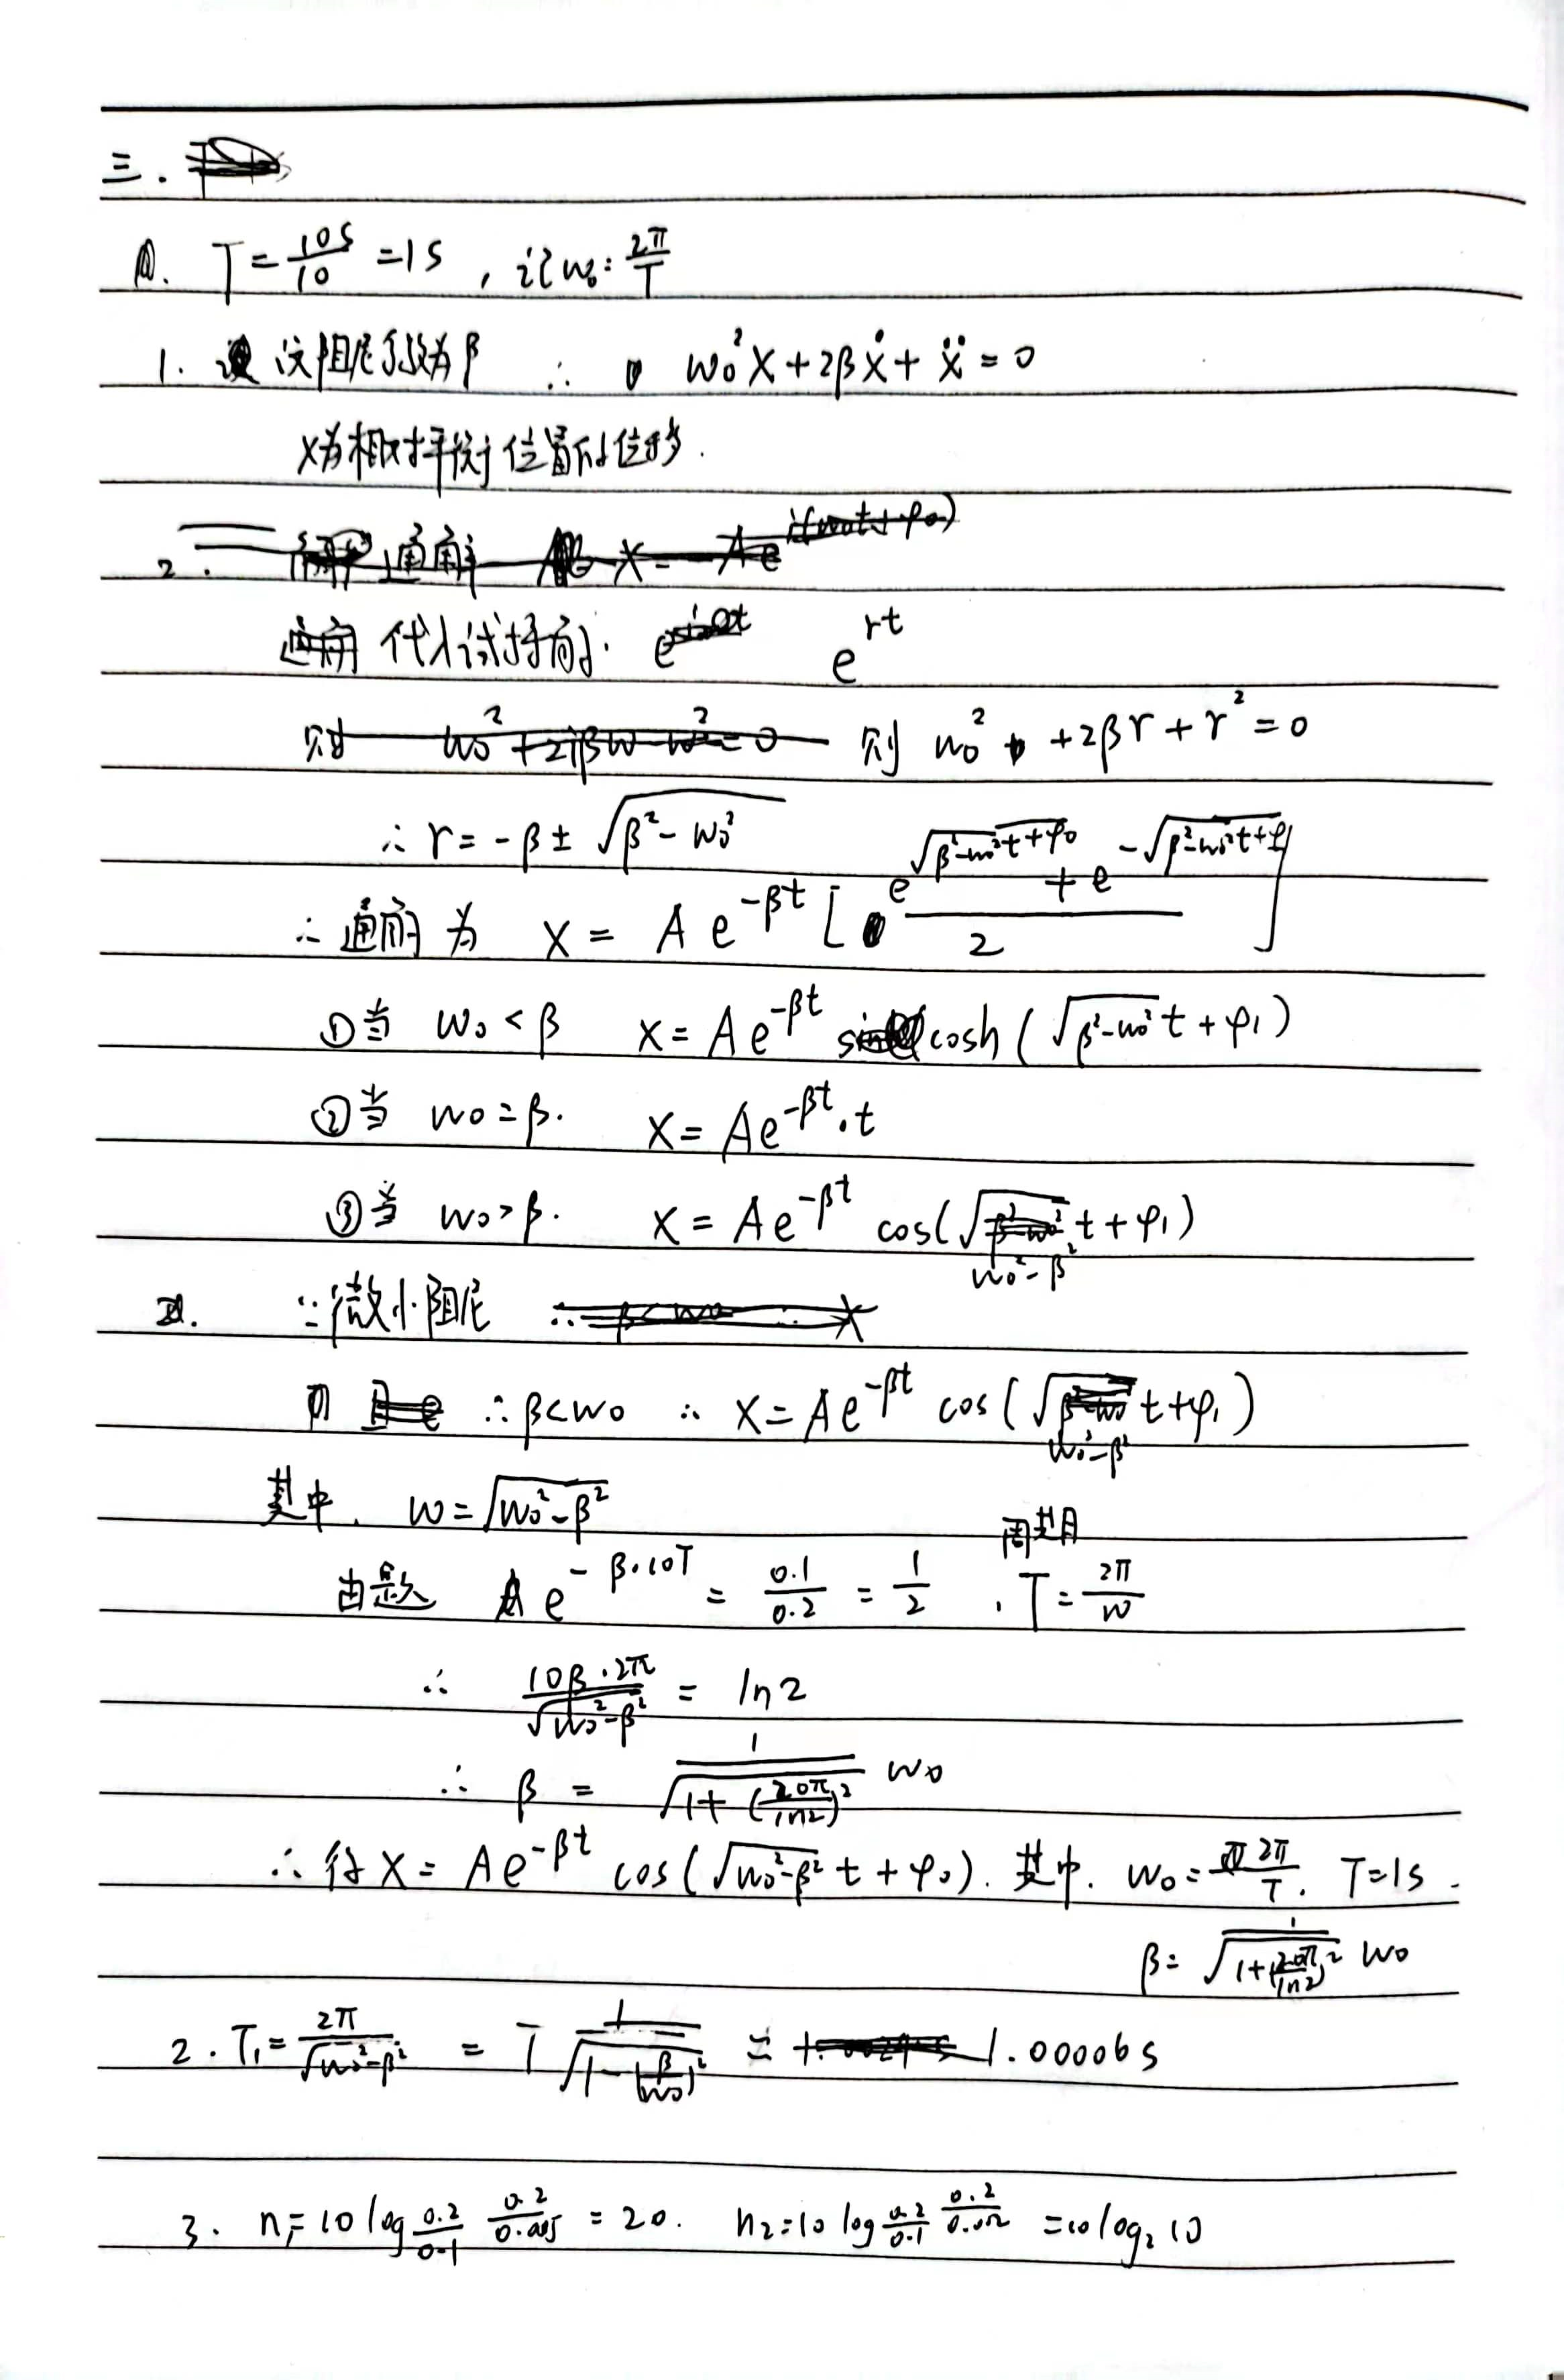 三.
T = 10s/10 = 1s , 记 w₀ = 2π/T
1. 设阻尼系数为β ∴ w₀²x + 2βẋ + ẍ = 0
x为相对平衡位置的位移.
2. 通解 x = Ae^{i(w₀t+φ₀)}
通解 代入试探解. e^{rt}
则 w₀² + 2iβw - w² = 0 则 w₀² + 2βr + r² = 0
∴ r = -β ± √(β² - w₀²)
∴ 通解为 x = A e^{-βt} [ (e^{√(β²-w₀²)t+φ₀} + e^{-√(β²-w₀²)t+φ})/2 ]
①当 w₀ < β x = A e^{-βt} cosh(√(β²-w₀²) t + φ₁)
②当 w₀ = β. x = A e^{-βt}·t
③当 w₀ > β. x = A e^{-βt} cos(√(w₀²-β²) t + φ₁)
∵ 微小阻尼
∴ β < w₀ ∴ x = A e^{-βt} cos(√(w₀²-β²) t + φ₁)
其中. w = √(w₀²-β²)
由题 e^{-β·10T} = 0.1/0.2 = 1/2 , 周期 T = 2π/w
∴ 10β·2π/√(w₀²-β²) = ln2
∴ β = 1/√(1+(20π/ln2)²) w₀
∴ 得 x = A e^{-βt} cos(√(w₀²-β²) t + φ₀). 其中. w₀ = 2π/T. T = 1s.
β = 1/√(1+(20π/ln2)²) w₀
2. T₁ = 2π/√(w₀²-β²) = T 1/√(1-(β/w₀)²) ≈ 1.00006s
3. n₁ = 10 log_{0.2/0.1} 0.2/0.05 = 20. n₂ = 10 log_{0.2/0.1} 0.2/0.02 = 10 log₂ 10